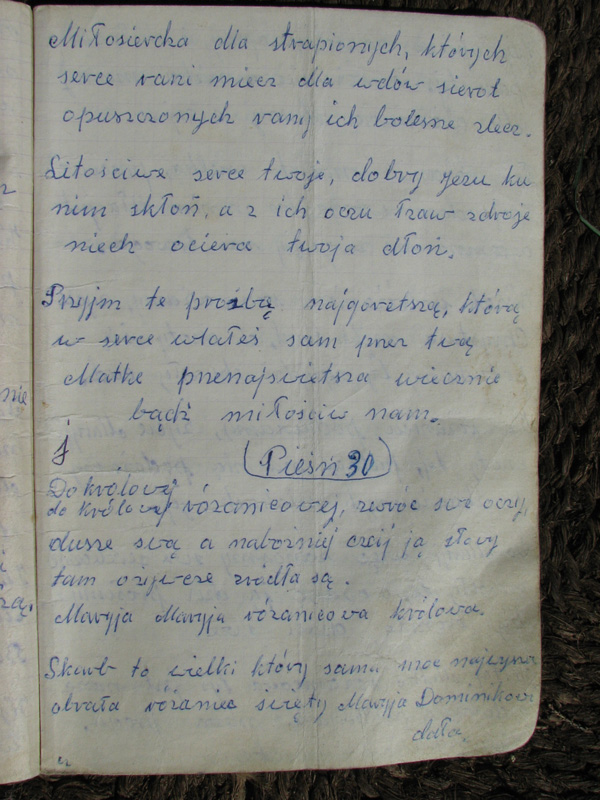 Miłosierdzia dla strapionych, których
serce rani miecz dla wdów sierot
opuszczonych rany ich bolesne lecz.
Litościwe serce twoje, dobry Jezu ku
nim skłoń, a z ich oczu łzaw zdroje
niech ociera twoja dłoń.
Przyjm te prośbą najgoretszą, którą
w serce wlałeś sam przez twą
Matke przenajswietsza wiecznie
bądź miłościw nam.
Pieśń 30
Do królowej
do królowej różanicowej, zwróc swe oczy,
dusze swą a nabożniej czcij ją słowy
tam ożywcze zródła są.
Maryja Maryja różanicowa królowa.
Skarb to wielki który sama moc najwyzsza
obrała różaniec swięty Maryja Dominikowi
dała.
nie